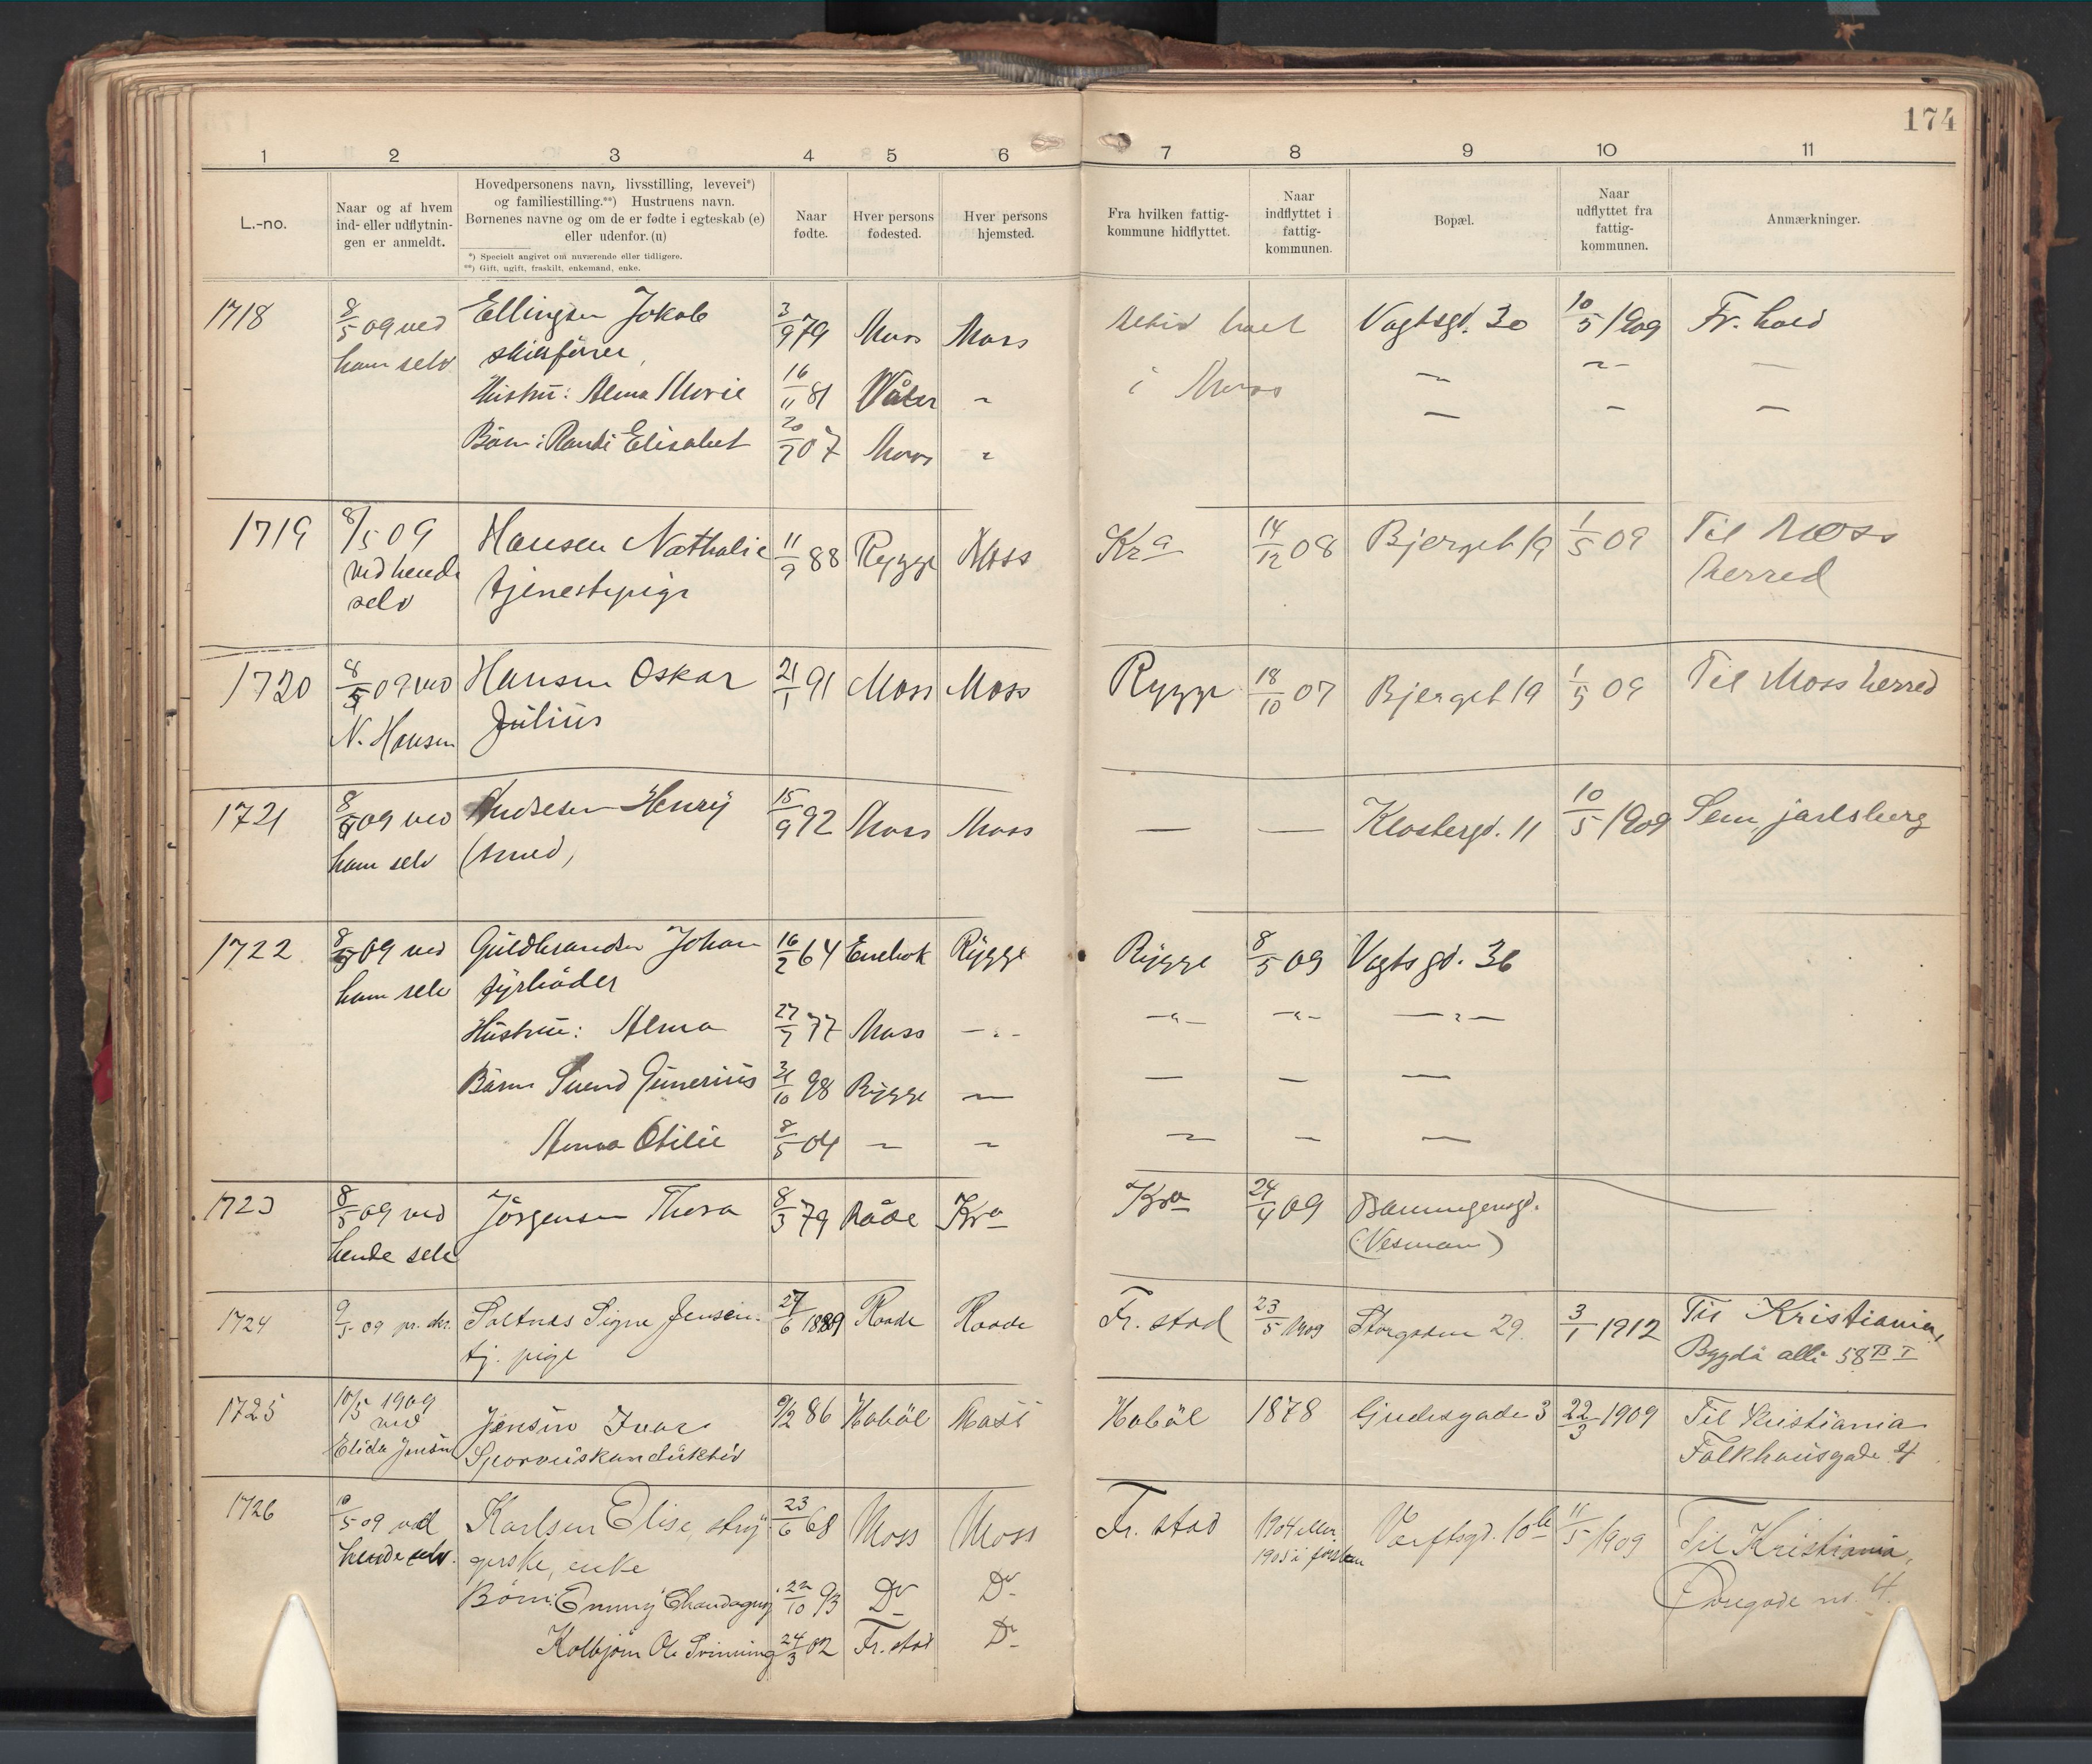 174
1 2 3 4 5 6 7 8 9 10 11
L.-no.
Naar og af hvem
ind- eller udflytnin-
gen er anmeldt.
Hovedpersonens navn, livsstilling, levevei*)
og familiestilling.**) Hustruens navn.
Børnenes navne og om de er fødte i egteskab (e)
eller udenfor. (u)
*) Specielt angivet om nuværende eller tidligere.
**) Gift, ugift, fraskilt, enkemand, enke.
Naar
fødte.
Hver persons
fødested.
Hver persons
hjemsted.
Fra hvilken fattig-
kommune hidflyttet.
Naar
indflyttet i
fattig-
kommunen.
Bopæl.
Naar
udflyttet fra
fattig-
kommunen.
Anmærkninger.
1718 8/5 09 ved Ellingsen Jakob 3/9 79 Moss Moss Vagtsgd. 30 10/5 1909 Fr. hald
ham selv skibsfører, i Moss
Hustru: Alma Marie 16/11 81 Våler
Barn: Randi Elisabet 20/7 07 Moss
1719 8/5 09 Hansen Nathalie 11/9 88 Rygge Moss Kra 14/12 08 Bjerget 19 1/5 09 Til Moss
ved hende tjenestepige herred
selv
1720 8/5 09 ved Hansen Oskar 21/1 91 Moss Moss Rygge 18/10 07 Bjerget 19 1/5 09 Til Moss herred
N. Hansen Julius
1721 8/5 09 ved Andresen Henry 15/9 92 Moss Moss — — Klostergd. 11 10/5 1909 Sem, jarlsberg
ham selv (smed)
1722 8/5 09 ved Guldbrandsen Johan 16/2 64 Enebok Rygge Rygge 8/5 09 Vagtsgd. 36
ham selv fyrbøder
Hustru: Alma 27/7 77 Moss -"- -"- -"- -"-
Børn Svend Gunerius 31/10 98 Rygge — — — —
Anna Otilie 8/5 04 — — — — —
1723 8/5 09 ved Jørgensen Thora 8/3 79 Råde Kra Kra 24/4 09
hende selv (Vesman)
1724 9/5 09 pr. skr. Saltnes Signe Jensen. 27/6 1889 Raade Raade Fr. stad 23/5 1909 Storgaden 29. 3/1 1912 Til Kristiania,
tj. pige Bygdø allé 58 B I
1725 10/5 1909 Jensen Ivar 9/2 86 Hobøl Moss Hobøl 1878 Gudesgade 3 22/3 1909 Til Kristiania
ved Falkhausgade 4
Elida Jensen Sporveiskonduktør
1726 10/5 09 ved Karlsen Elise, stry- 23/6 68 Moss Moss Fr. stad 1904 eller Værftsgd. 10b 11/5 1909 Til Kristiania,
hende selv. gerske, enke 1905 i gade no. 4.
Børn: Emmy 22/10 93 Do Do
Kolbjørn Ole 24/3 02 Fr. stad Do